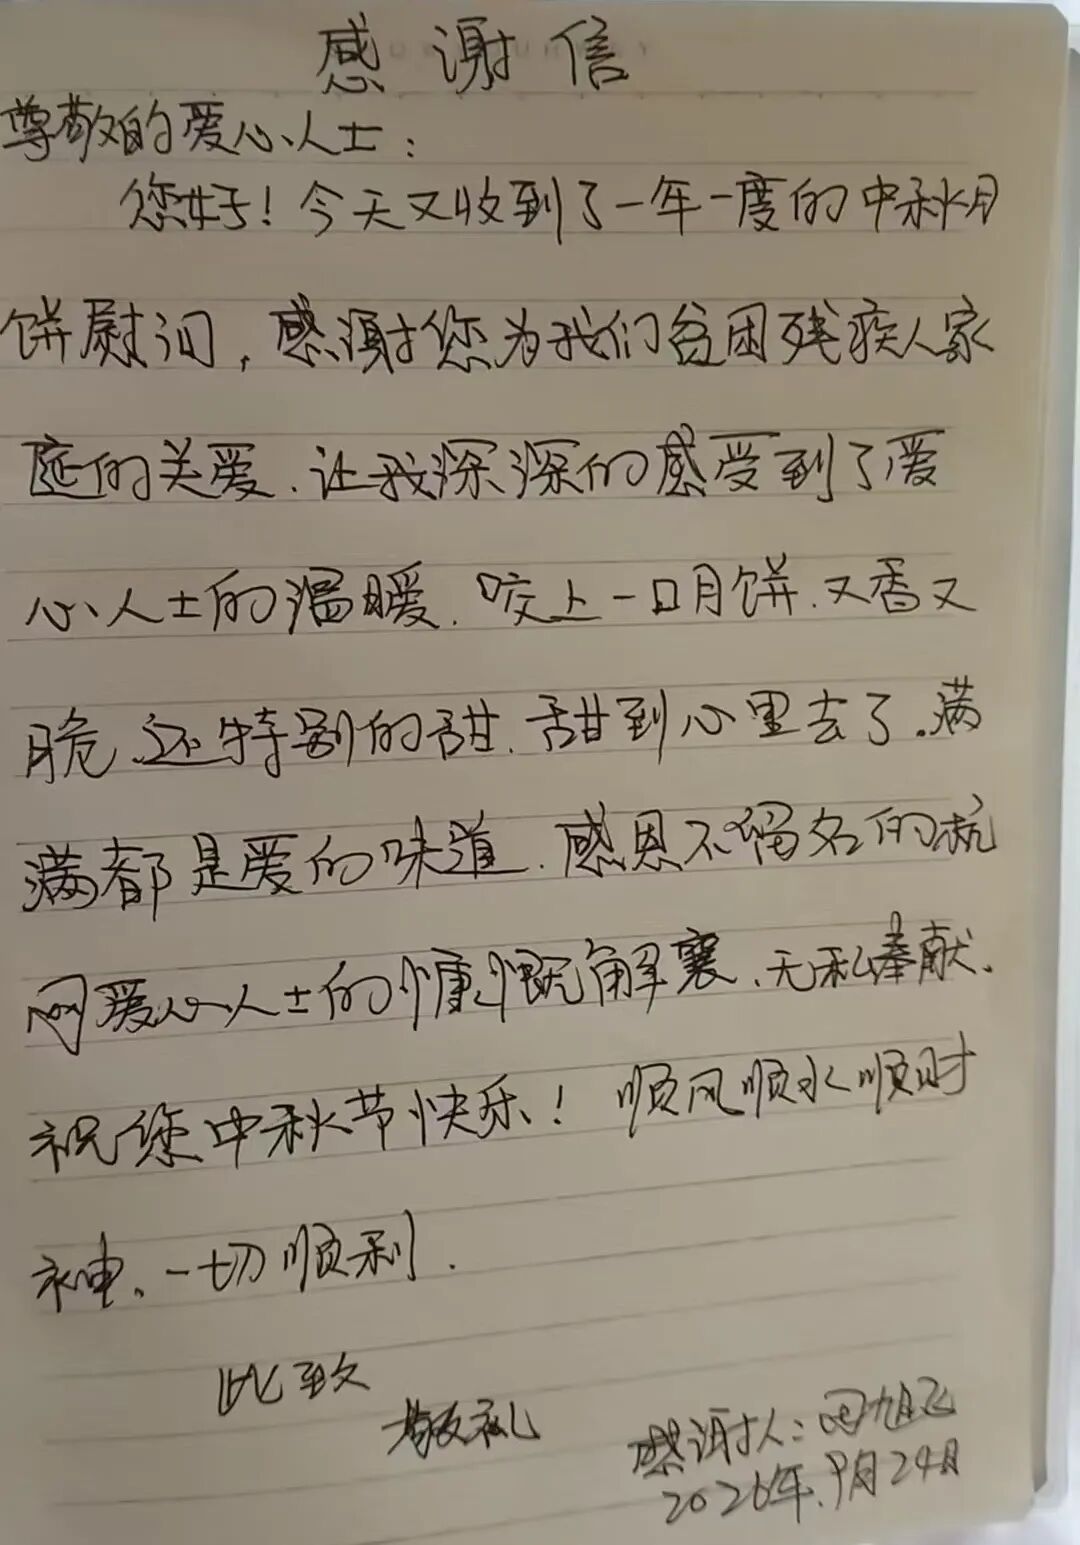 感谢信
尊敬的爱心人士：
您好！今天又收到了一年一度的中秋月
饼慰问，感谢您为我们贫困残疾人家
庭的关爱.让我深深的感受到了爱
心人士的温暖.咬上一口月饼.又香又
脆.还特别的甜.甜到心里去了.满
满都是爱的味道.感恩不留名的杭
网爱心人士的慷慨解囊、无私奉献.
祝您中秋节快乐！顺风顺水顺时
神、一切顺利.
此致
敬礼
感谢人：田旭飞
2026年.9月24日